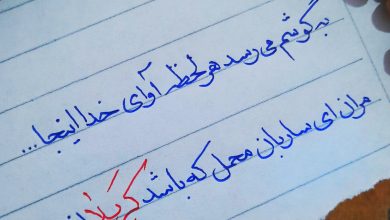 به گوشم می رسد هر لحظه آوای خدا اینجا...
مران ای ساربان محمل که باشد کربلا